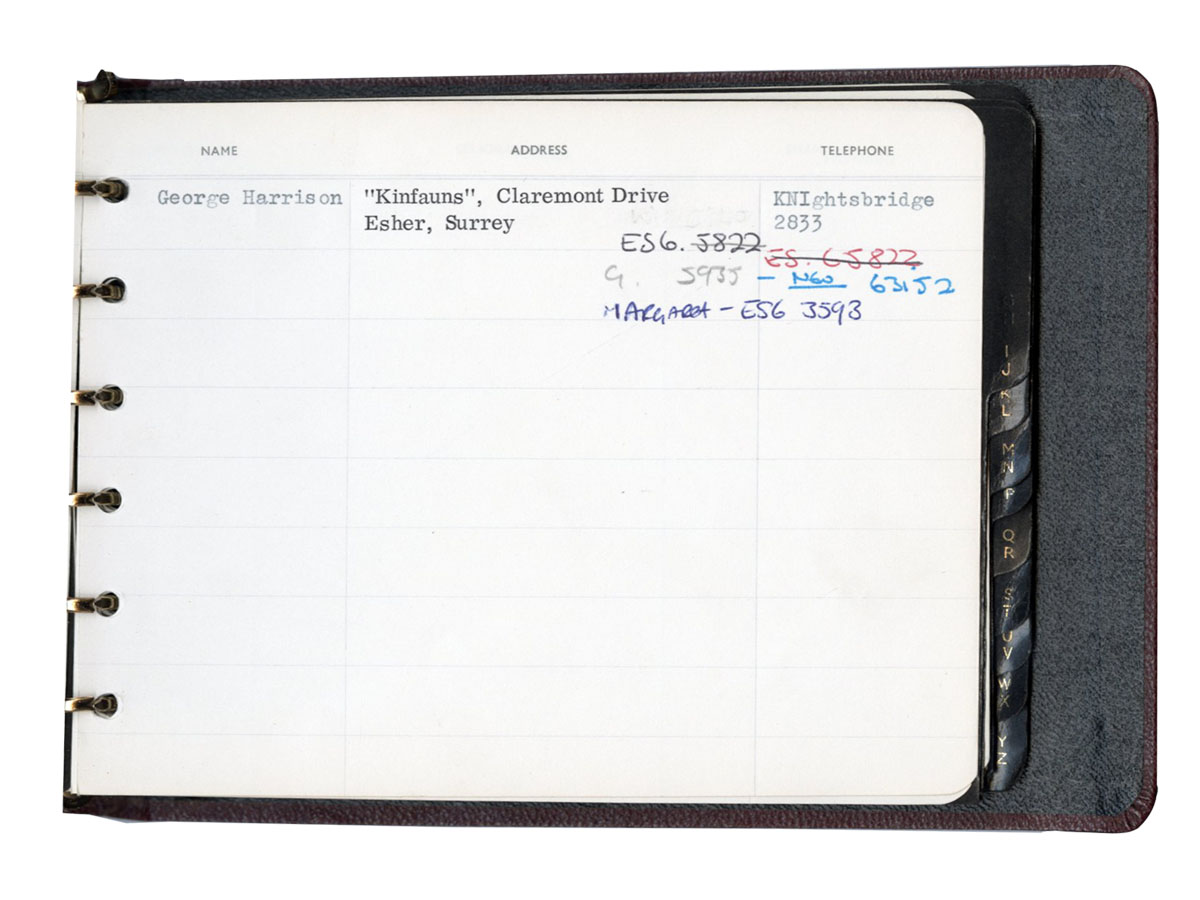 NAME ADDRESS TELEPHONE
George Harrison "Kinfauns", Claremont Drive KNIghtsbridge
Esher, Surrey 2833
ES6. 5822 ES. 65822
G. 5935 – NEW 63152
MARGARET – ES6 3593
I
J
K
L
M
N
P
Q
R
S
T
U
V
W
X
Y
Z